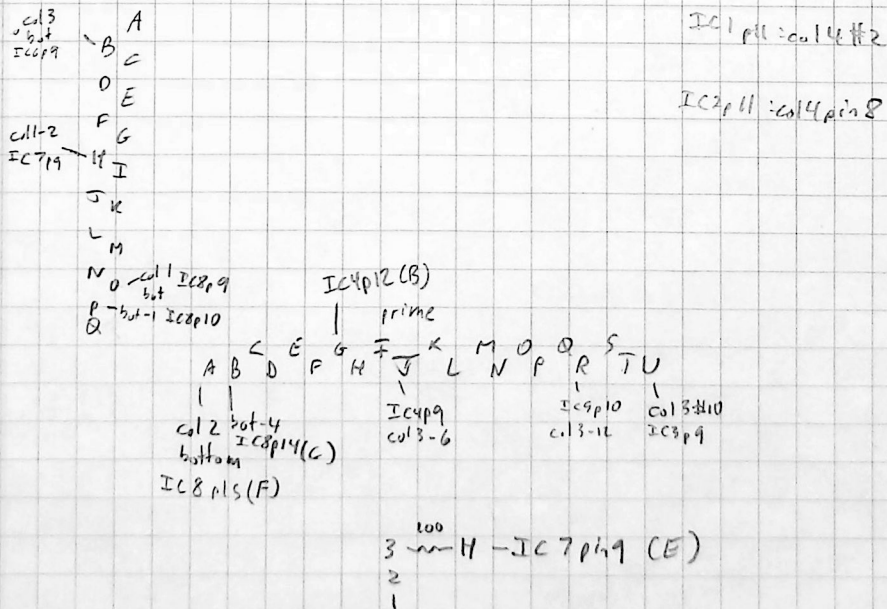 col3
bot
IC6p9
A
B
C
D
E
F
G
col1-2
IC7p9
H
I
J
K
L
M
N
O
col 1 IC8p9
bot
P
bot-1 IC8p10
Q
IC1 p11 : col 4 #2
IC2p11 : col4 pin 8
IC4p12 (B)
prime
A B C D E F G H I J K L M N O P Q R S T U
col 2
bottom
IC8 p15 (F)
bot-4
IC8p14 (C)
IC4p9
col3-6
col3-12
col 3 #10
IC3p9
100
3 H - IC7 pin 9 (E)
2
1